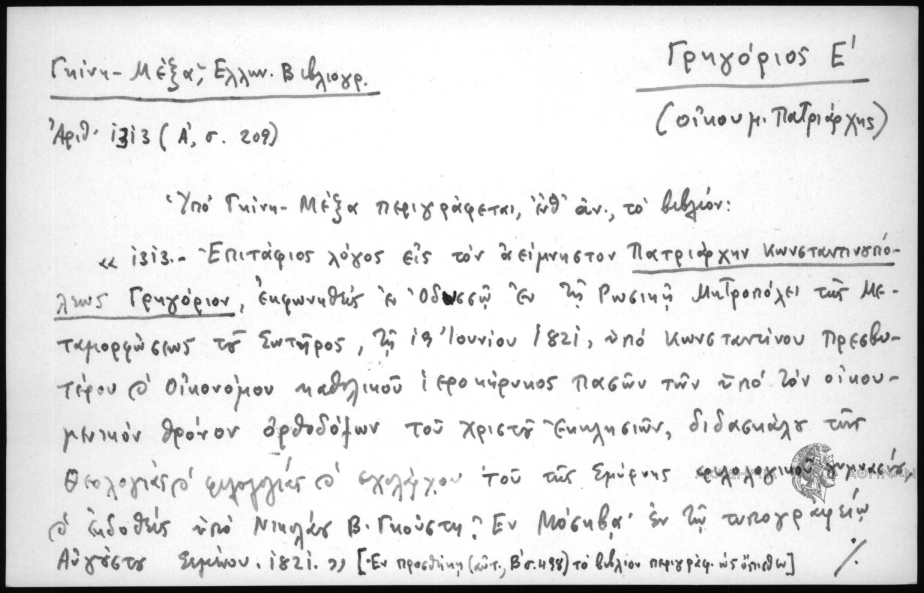 Γρηγόριος Ε'
Γκίνη - Μέξα, Ελλην. Βιβλιογρ.
(οἰκουμ. Πατριάρχης)
Ἀριθ. 1313 (Α', σ. 209)
Ὑπό Γκίνη - Μέξα περιγράφεται, ἔνθ' ἀν., τό βιβλίον:
« 1313.- Ἐπιτάφιος λόγος εἰς τόν ἀείμνηστον Πατριάρχην Κωνσταντινουπό-
λεως Γρηγόριον, ἐκφωνηθείς ἐν Ὀδησσῷ ἐν τῇ Ρωσικῇ Μητροπόλει τῆς Με-
ταμορφώσεως τοῦ Σωτῆρος, τῇ 19 Ἰουνίου 1821, ὑπό Κωνσταντίνου Πρεσβυ-
τέρου & Οἰκονόμου καθολικοῦ ἱεροκήρυκος πασῶν τῶν ὑπό τόν οἰκου-
μενικόν θρόνον ὀρθοδόξων τοῦ Χριστοῦ Ἐκκλησιῶν, διδασκάλου τῆς
Θεολογίας & φιλολογίας & σχολάρχου τοῦ τῆς Σμύρνης φιλολογικοῦ γυμνασίου,
& ἐκδοθείς ὑπό Νικολάου Β. Γκούστη; Ἐν Μόσκβᾳ ἐν τῷ τυπογραφείῳ
Αὐγούστου Σεμένου. 1821. » [Ἐν προσθήκη (αὐτ., Β' σ. 498) τό βιβλίον περιγράφ. ὡς ὄπισθεν] ./.